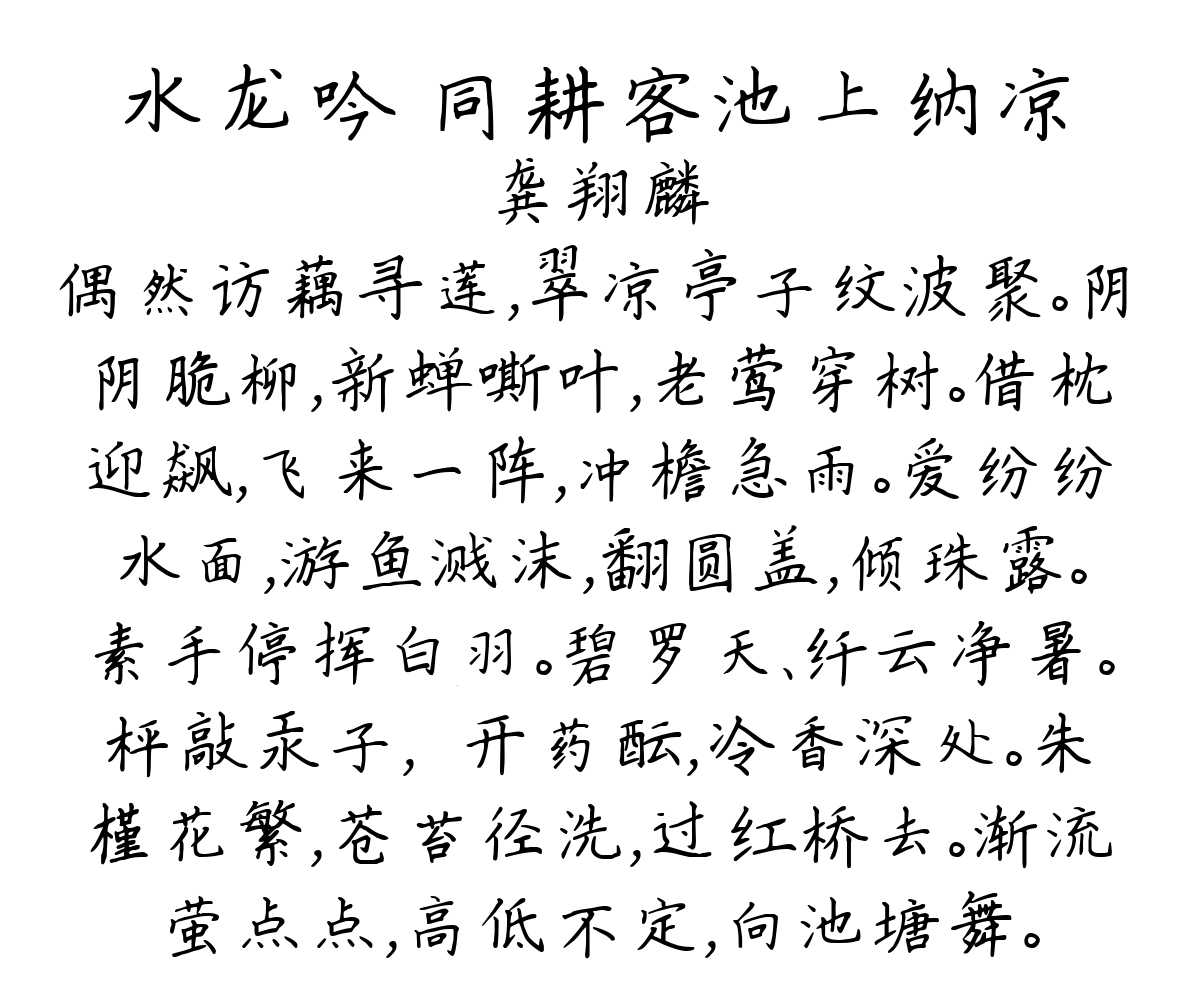 水龙吟 同耕客池上纳凉
龚翔麟
偶然访藕寻莲,翠凉亭子纹波聚。阴
阴脆柳,新蝉嘶叶,老莺穿树。借枕
迎飙,飞来一阵,冲檐急雨。爱纷纷
水面,游鱼溅沫,翻圆盖,倾珠露。
素手停挥白羽。碧罗天、纤云净暑。
枰敲汞子, 开药酝,冷香深处。朱
槿花繁,苍苔径洗,过红桥去。渐流
萤点点,高低不定,向池塘舞。